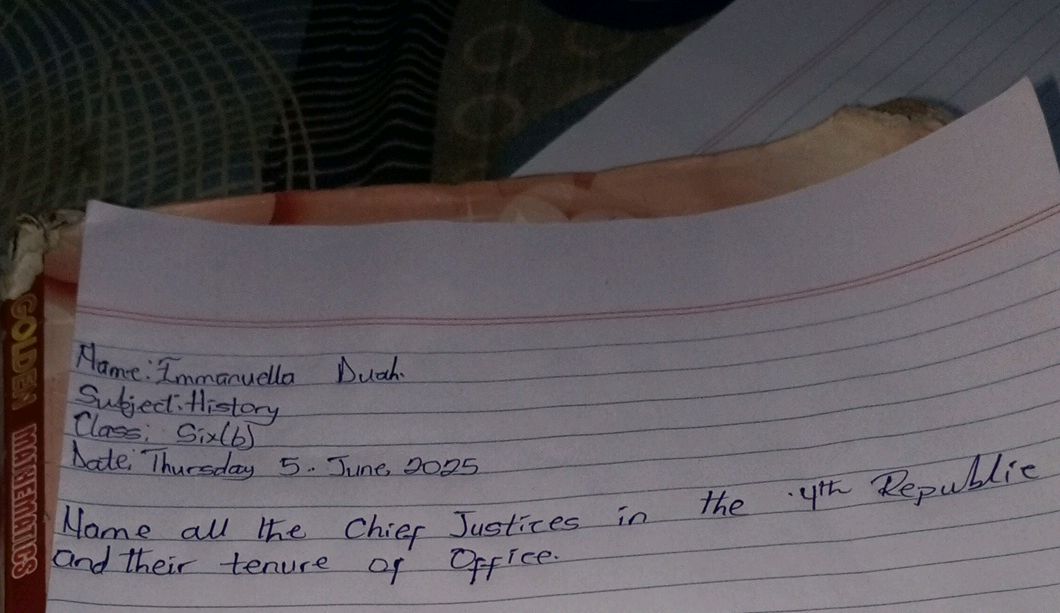 Name: Immanuella Duah.
Subject: History
Class: Six(b)
Date: Thursday 5. June, 2025
Name all the Chief Justices in the 4th Republic
and their tenure of Office.
GOLDEN MATHEMATICS